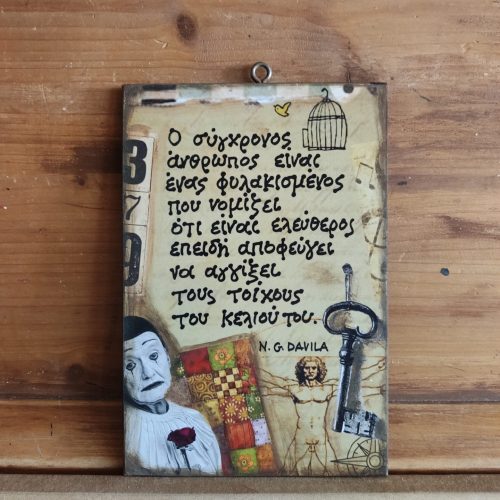 Ο σύγχρονος
άνθρωπος είναι
ένας φυλακισμένος
που νομίζει
ότι είναι ελεύθερος
επειδή αποφεύγει
να αγγίξει
τους τοίχους
του κελιού του.
N. G. DAVILA
3
7
9